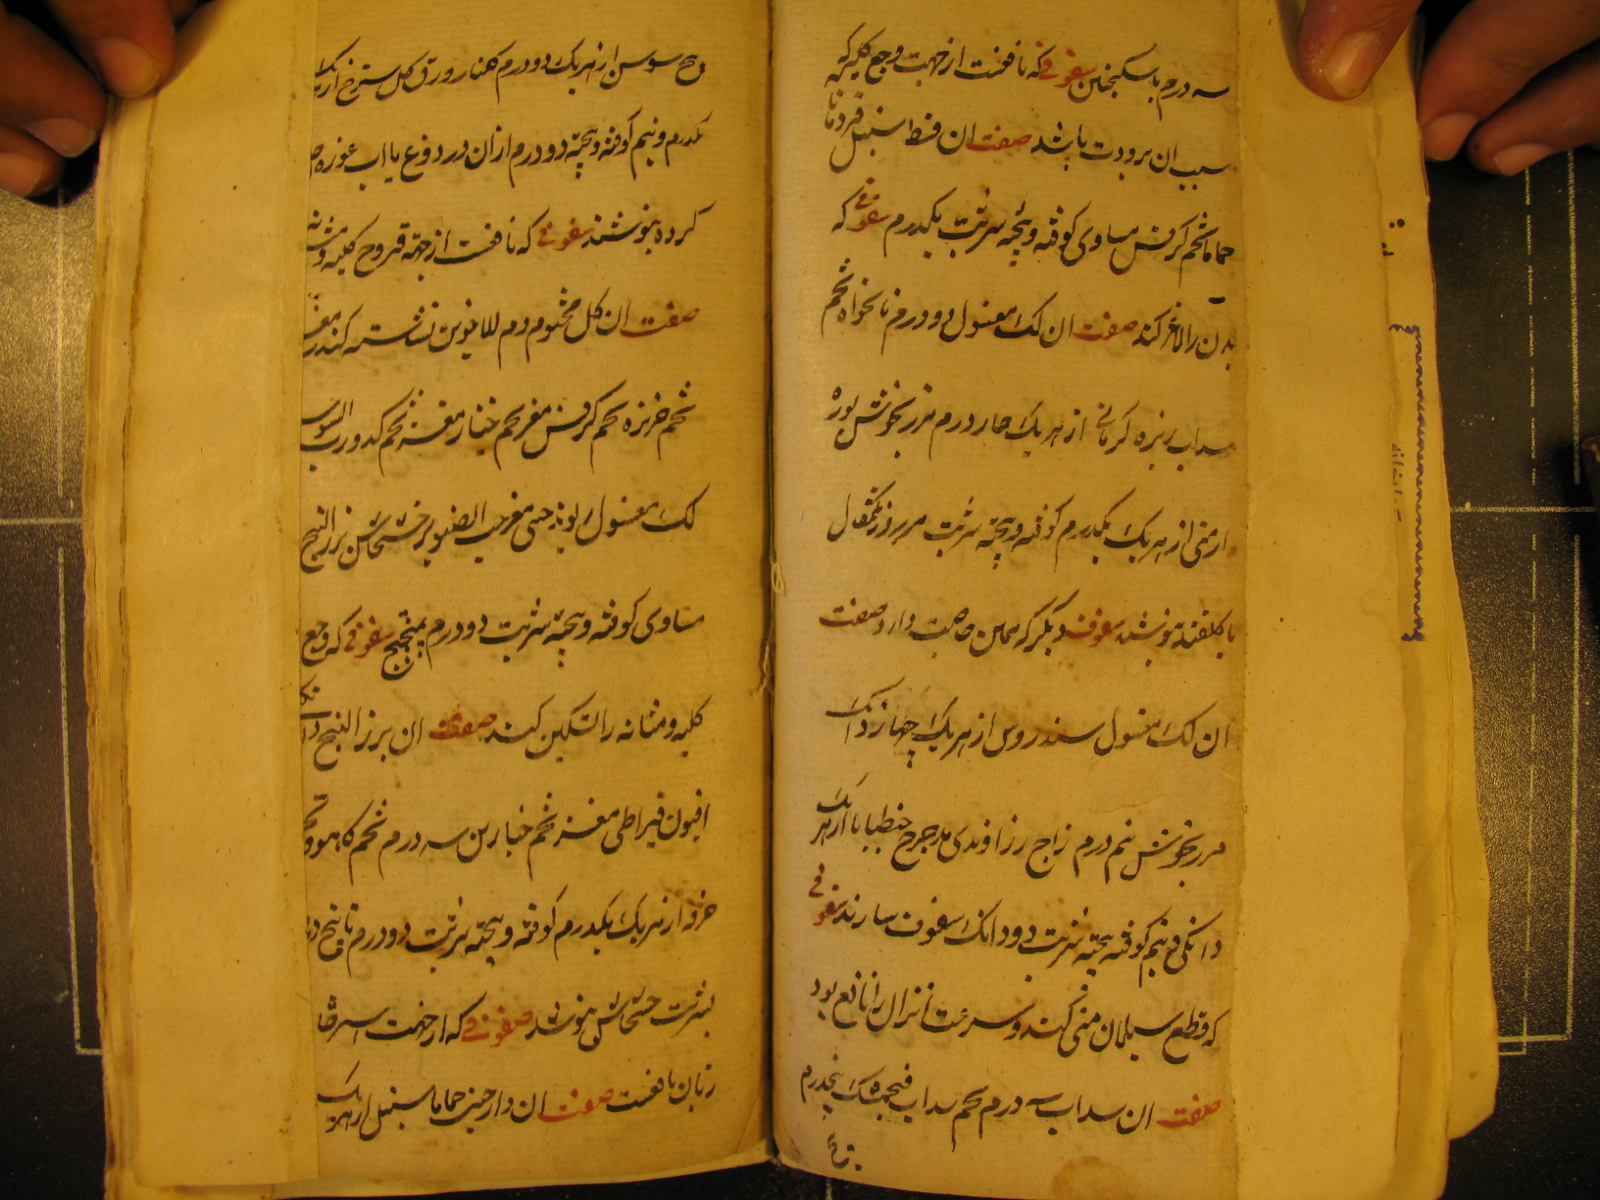 سه درم با سکنجبین سفوفی که نافعست از جهت وجع کلیه که
سبب ان برودت باشد صفت ان قسط سنبل قردمانا
حماما تخم کرفس مساوی کوفته و بیخته شربت یکدرم سفوفی که
بدن را لاغر کند صفت ان لک مغسول دو درم نانخواه تخم
سداب زیره کرمانی از هر یک چار درم مرزنجوش بوره
ارمنی از هر یک یکدرم کوفته و بیخته شربت هر روز یکمثقال
با کلقند بنوشند سفوف دیگر که همین خاصیت دارد صفت
ان لک مغسول سندروس از هر یک چهار دانک
مرزنجوش نیم درم زاج رزاوندی مدحرج جنطیانا از هر یک
دانکی و نیم کوفته بیخته شربت دو دانک سفوف سازند سفوفی
که قطع سیلان منی کند و سرعت انزال را نافع بود
صفت ان سداب سه درم تخم سداب فنجنکشت پنجدرم
وج سوسن از هر یک دو درم کلنار ورق کل سرخ از هر یک
یکدرم و نیم کوفته و بیخته دو درم ازان در دوغ یا اب غوره
کرده بنوشند سفوفی که نافعست از جهة قروح کلیه و مثانه
صفت ان کل مختوم دم الاخوین نشاسته کندر مغز
تخم خربزه تخم کرفس مغز تخم خیار مغز تخم کدو رب السوس
لک مغسول ریوند چینی مغز حب الصنوبر خشخاش بزر البنج
مساوی کوفته و بیخته شربت دو درم بمیبختج سفوفی که وجع
کلیه و مثانه را تسکین کند صفت ان بزر البنج دانک
افیون قیراطی مغز تخم خیارین سه درم تخم کاهو و تخم
خرفه از هر یک یکدرم کوفته و بیخته شربت دو درم تا پنج درم
بشربت خشخاش بنوشند سفوفی که از جهت استرخا
زبان نافعست صفت ان دارچینی حماما سنبل از هر یک